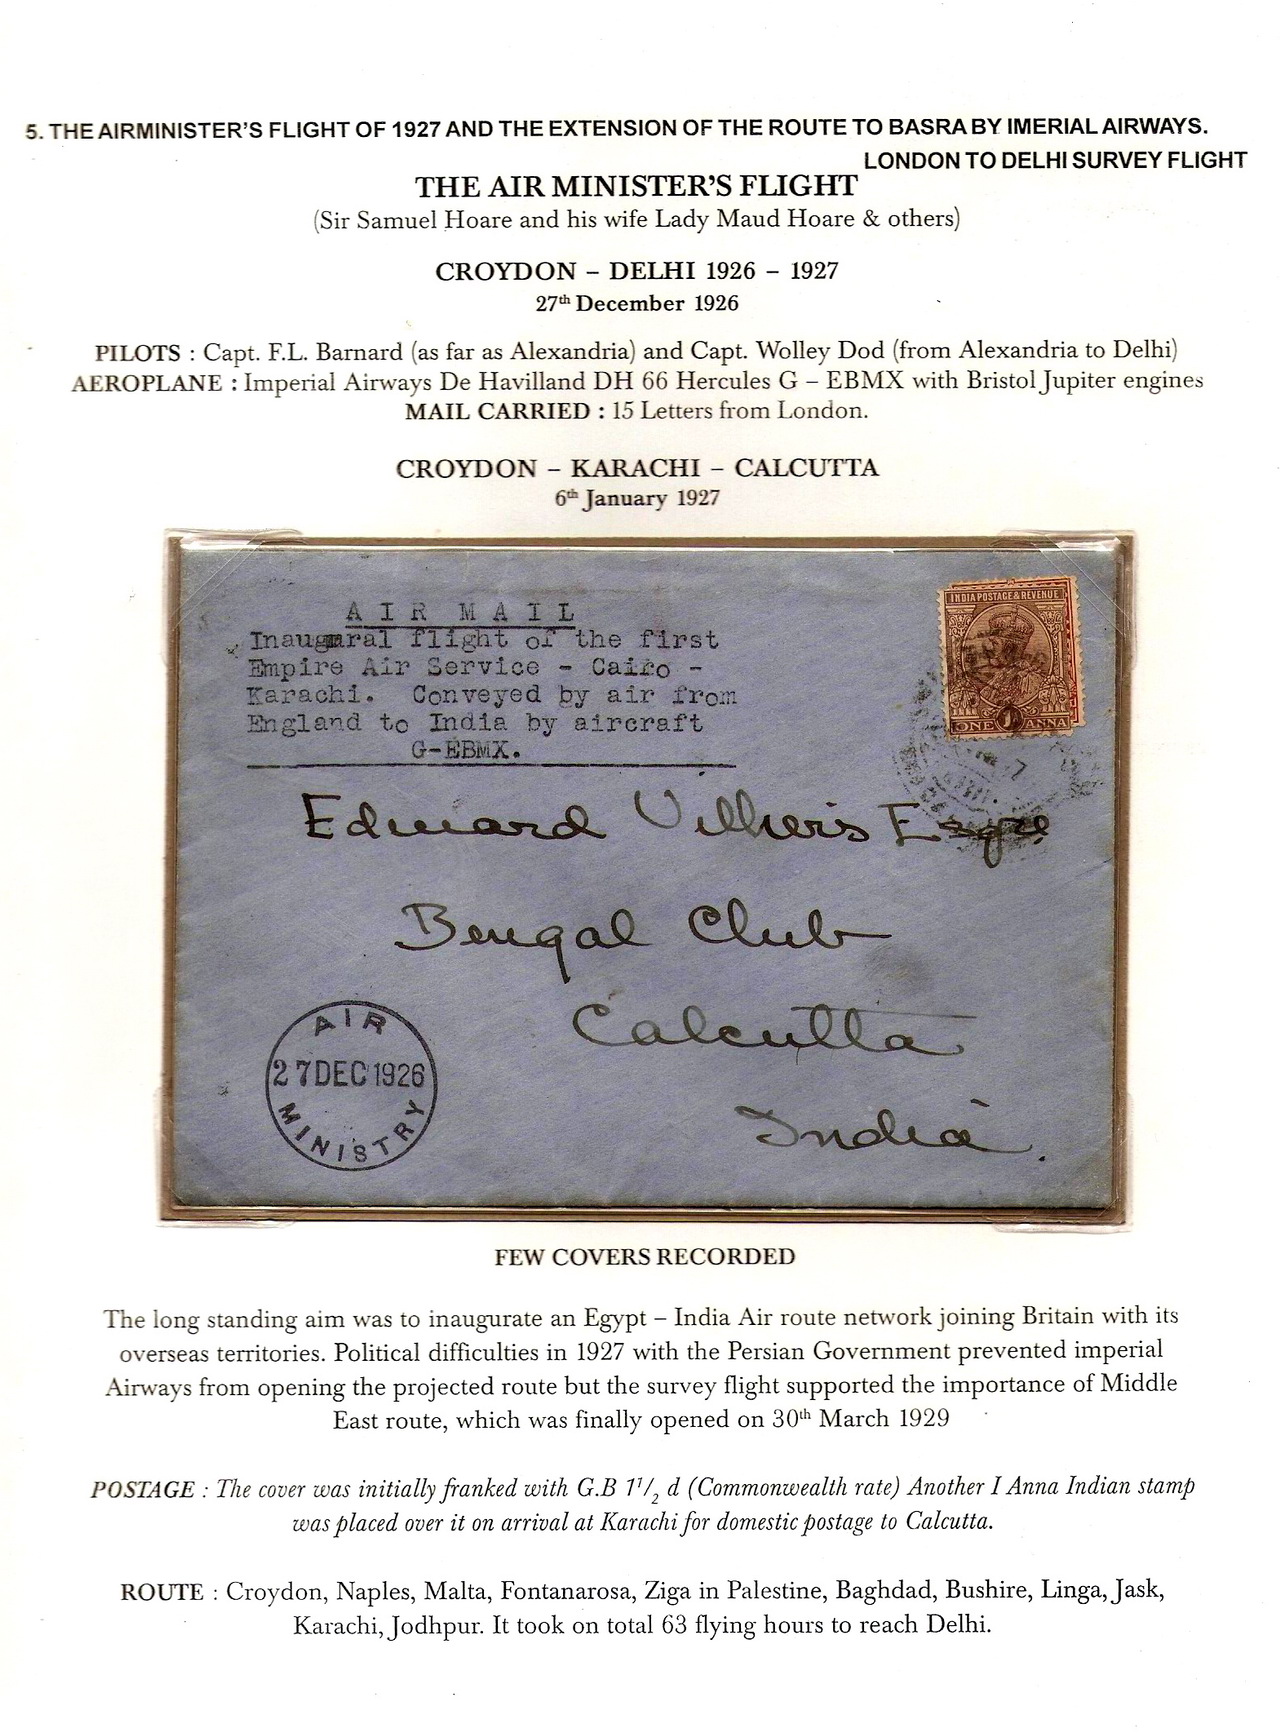 5. THE AIRMINISTER'S FLIGHT OF 1927 AND THE EXTENSION OF THE ROUTE TO BASRA BY IMERIAL AIRWAYS.
LONDON TO DELHI SURVEY FLIGHT
THE AIR MINISTER'S FLIGHT
(Sir Samuel Hoare and his wife Lady Maud Hoare & others)
CROYDON – DELHI 1926 – 1927
27th December 1926
PILOTS : Capt. F.L. Barnard (as far as Alexandria) and Capt. Wolley Dod (from Alexandria to Delhi)
AEROPLANE : Imperial Airways De Havilland DH 66 Hercules G – EBMX with Bristol Jupiter engines
MAIL CARRIED : 15 Letters from London.
CROYDON – KARACHI – CALCUTTA
6th January 1927
AIR MAIL
Inaugmral flight of the first
Empire Air Service - Cairo -
Karachi. Conveyed by air from
England to India by aircraft
G-EBMX.
INDIA POSTAGE & REVENUE
1
ONE ANNA
Edward Villiers Esqre
Bengal Club
Calcutta
India.
AIR
27 DEC 1926
MINISTRY
FEW COVERS RECORDED
The long standing aim was to inaugurate an Egypt – India Air route network joining Britain with its
overseas territories. Political difficulties in 1927 with the Persian Government prevented imperial
Airways from opening the projected route but the survey flight supported the importance of Middle
East route, which was finally opened on 30th March 1929
POSTAGE : The cover was initially franked with G.B 1 1/2 d (Commonwealth rate) Another I Anna Indian stamp
was placed over it on arrival at Karachi for domestic postage to Calcutta.
ROUTE : Croydon, Naples, Malta, Fontanarosa, Ziga in Palestine, Baghdad, Bushire, Linga, Jask,
Karachi, Jodhpur. It took on total 63 flying hours to reach Delhi.